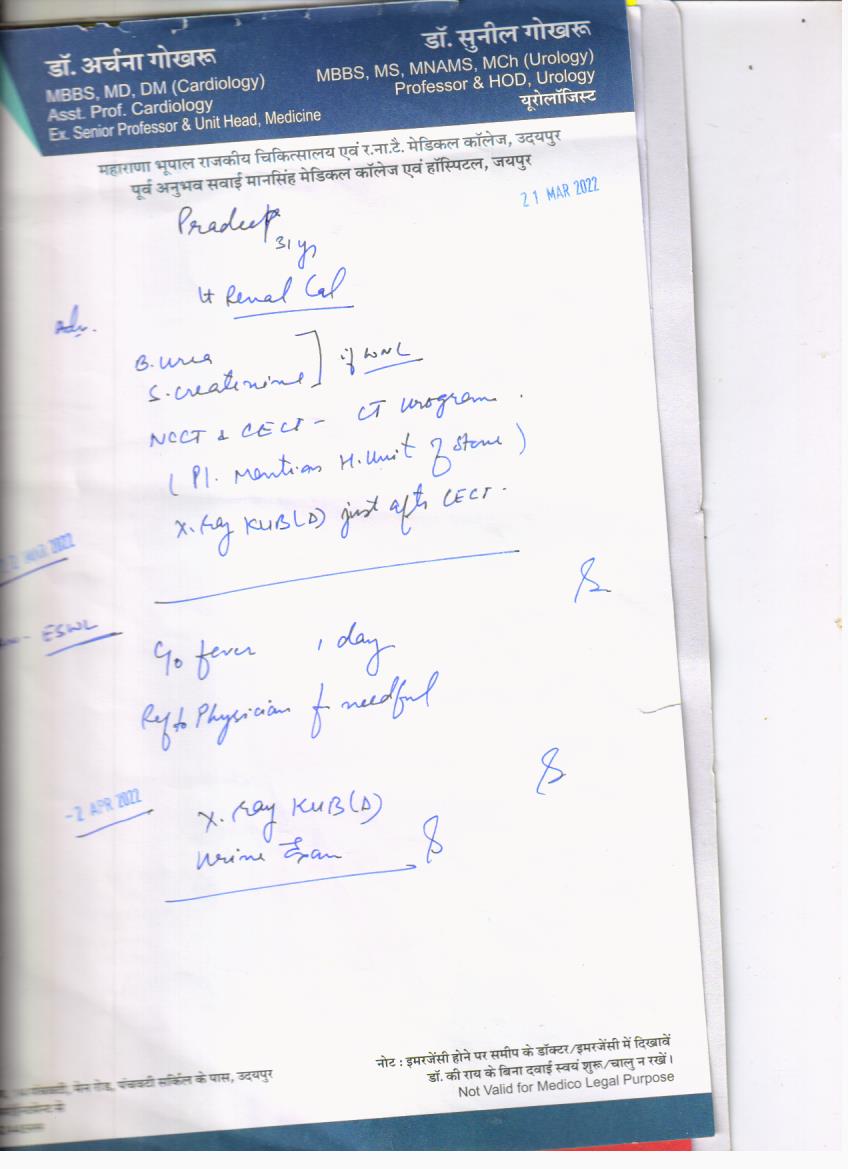 डॉ. अर्चना गोखरू
MBBS, MD, DM (Cardiology)
Asst. Prof. Cardiology
Ex. Senior Professor & Unit Head, Medicine
डॉ. सुनील गोखरू
MBBS, MS, MNAMS, MCh (Urology)
Professor & HOD, Urology
यूरोलॉजिस्ट
महाराणा भूपाल राजकीय चिकित्सालय एवं र.ना.टै. मेडिकल कॉलेज, उदयपुर
पूर्व अनुभव सवाई मानसिंह मेडिकल कॉलेज एवं हॉस्पिटल, जयपुर
21 MAR 2022
Pradeep
31 yr
Lt Renal Cal
Adv.
B. Urea
S. Creatinine ] if WNL
NCCT & CECT - CT Urogram.
(Pl. Mention H. Unit of Stone)
X. Ray KUB (D) just after CECT.
22 MAR 2022
ESWL
C/o fever 1 day
Ref to Physician f needful
-2 APR 2022
X. Ray KUB (D)
Urine Exam
पंचवटी सर्किल के पास, उदयपुर
नोट : इमरजेंसी होने पर समीप के डॉक्टर/इमरजेंसी में दिखावें
डॉ. की राय के बिना दवाई स्वयं शुरू/चालु न रखें।
Not Valid for Medico Legal Purpose